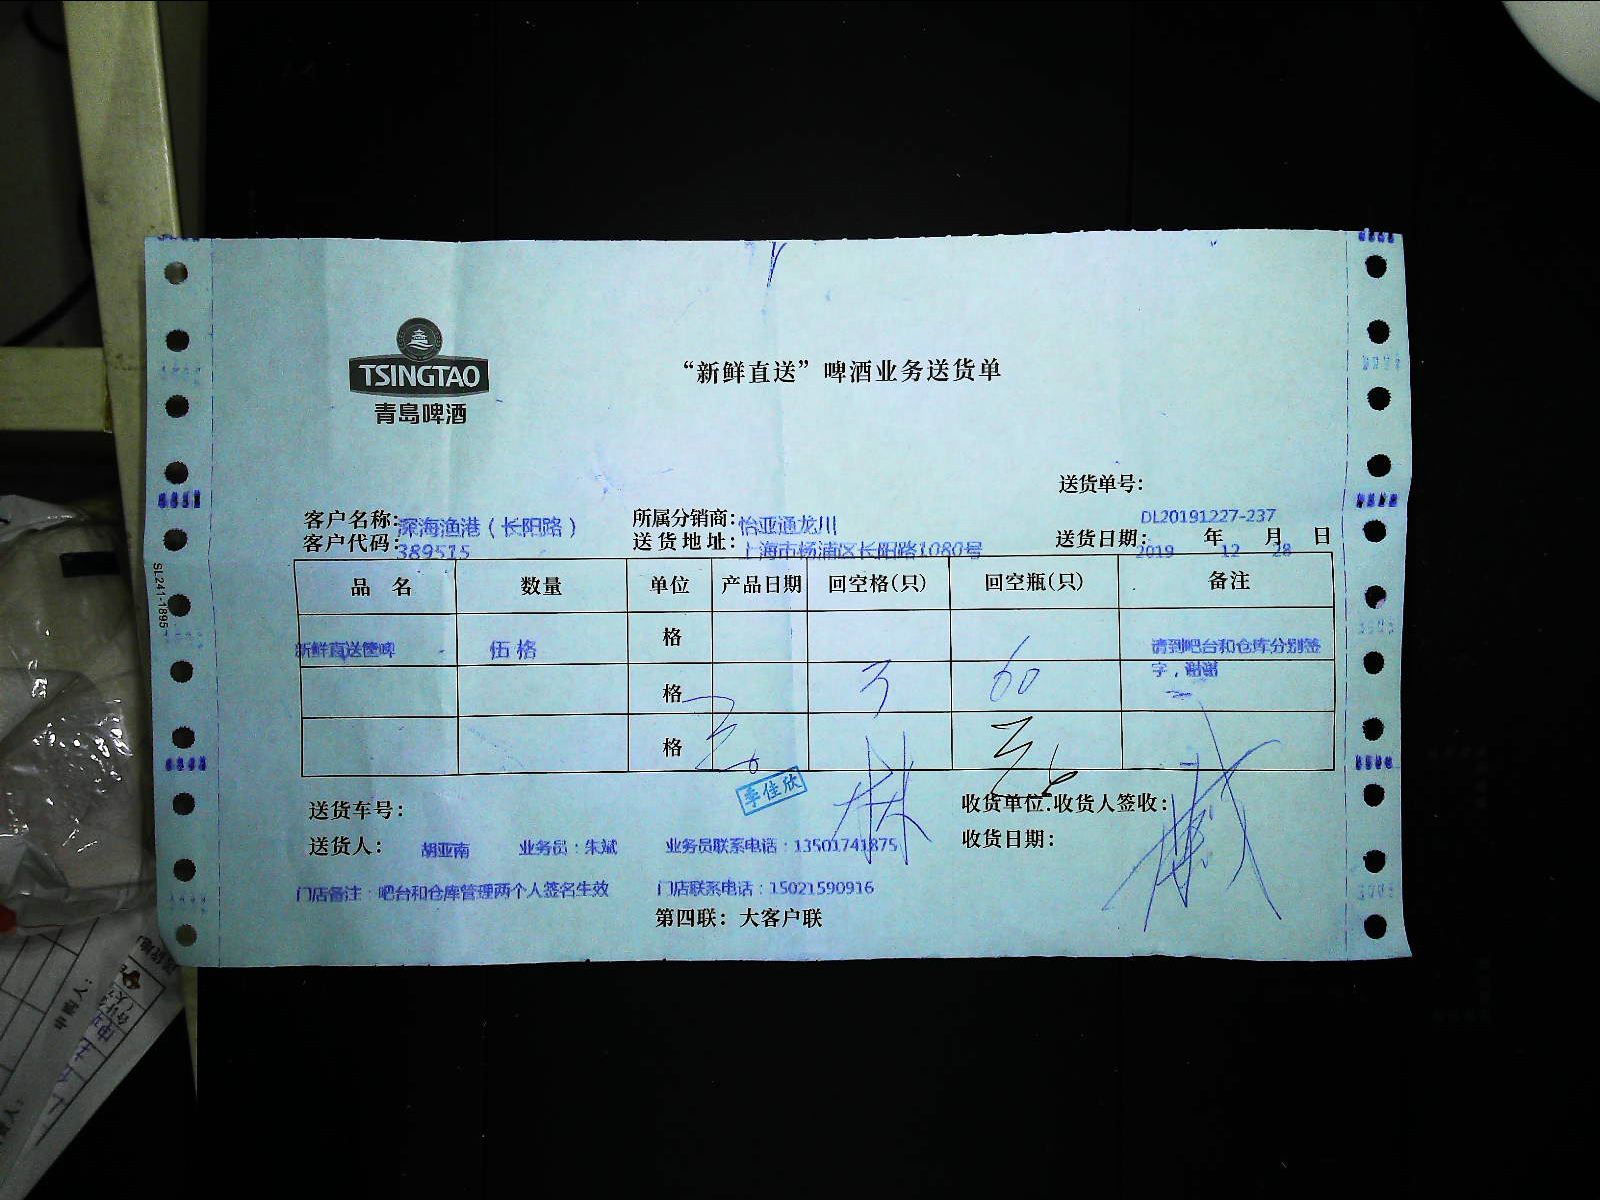 TSINGTAO
青岛啤酒
“新鲜直送”啤酒业务送货单
送货单号：
DL20191227-237
客户名称：深海渔港（长阳路） 所属分销商：怡亚通龙川
客户代码：389515 送货地址：上海市杨浦区长阳路1080号 送货日期：2019年12月28日
品 名 数量 单位 产品日期 回空格(只) 回空瓶(只) 备注
新鲜直送箧啤 伍格 格 请到吧台和仓库分别签
字，谢谢
格 3 60
格
李佳欣
送货车号： 收货单位.收货人签收：
送货人： 胡亚南 业务员：朱斌 业务员联系电话：13501741875 收货日期：
门店备注：吧台和仓库管理两个人签名生效 门店联系电话：15021590916
第四联：大客户联
SL241-1895
申购人：